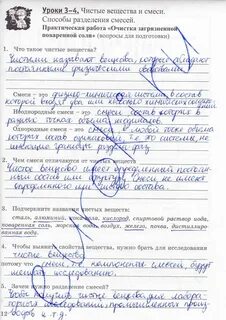 Уроки 3–4. Чистые вещества и смеси.
Способы разделения смесей.
Практическая работа «Очистка загрязненной
поваренной соли» (вопросы для подготовки)
1. Что такое чистые вещества?
Чистыми называют вещества, которые обладают
постоянными физическими свойствами
Смеси – это физико-химическая система, в состав
которой входят два или несколько химических соединений
Неоднородные смеси – это смеси, состав которых в
разных точках
Однородные смеси – это смеси, в любой точке объема
которых состав одинаковый, т.е. это системы, не
имеющие границы раздела фаз.
2. Чем смеси отличаются от чистых веществ?
Чистое вещество имеет определенный постоян-
ный состав или структуру. Смеси не имеют
определенного или чистого состава.
3. Подчеркните названия чистых веществ:
сталь, алюминий, кислород, спиртовой раствор иода,
поваренная соль, морская вода, воздух, железо, почва, дистиллиро-
ванная вода.
4. Чтобы выявить свойства вещества, нужно брать для исследования
чистые вещества
потому что компоненты смесей, будут
мешать исследованию.
5. Зачем нужно разделение смесей?
Чтобы получить чистые вещества для лабора-
торных исследований, промышленных произ-
водств и т.д.
12